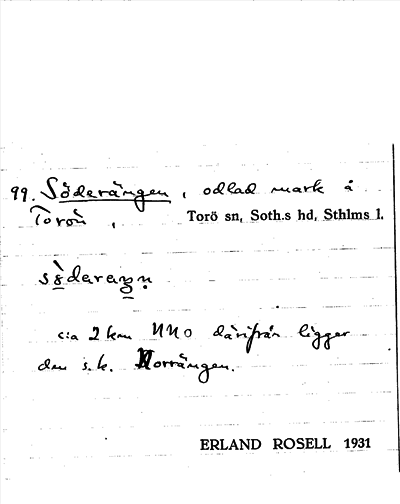 99. Söderängen, odlad mark å
Torön,
Torö sn, Soth.s hd, Sthlms l.
c:a 2 km NNO därifrån ligger
den s.k. Norrängen.
ERLAND ROSELL 1931